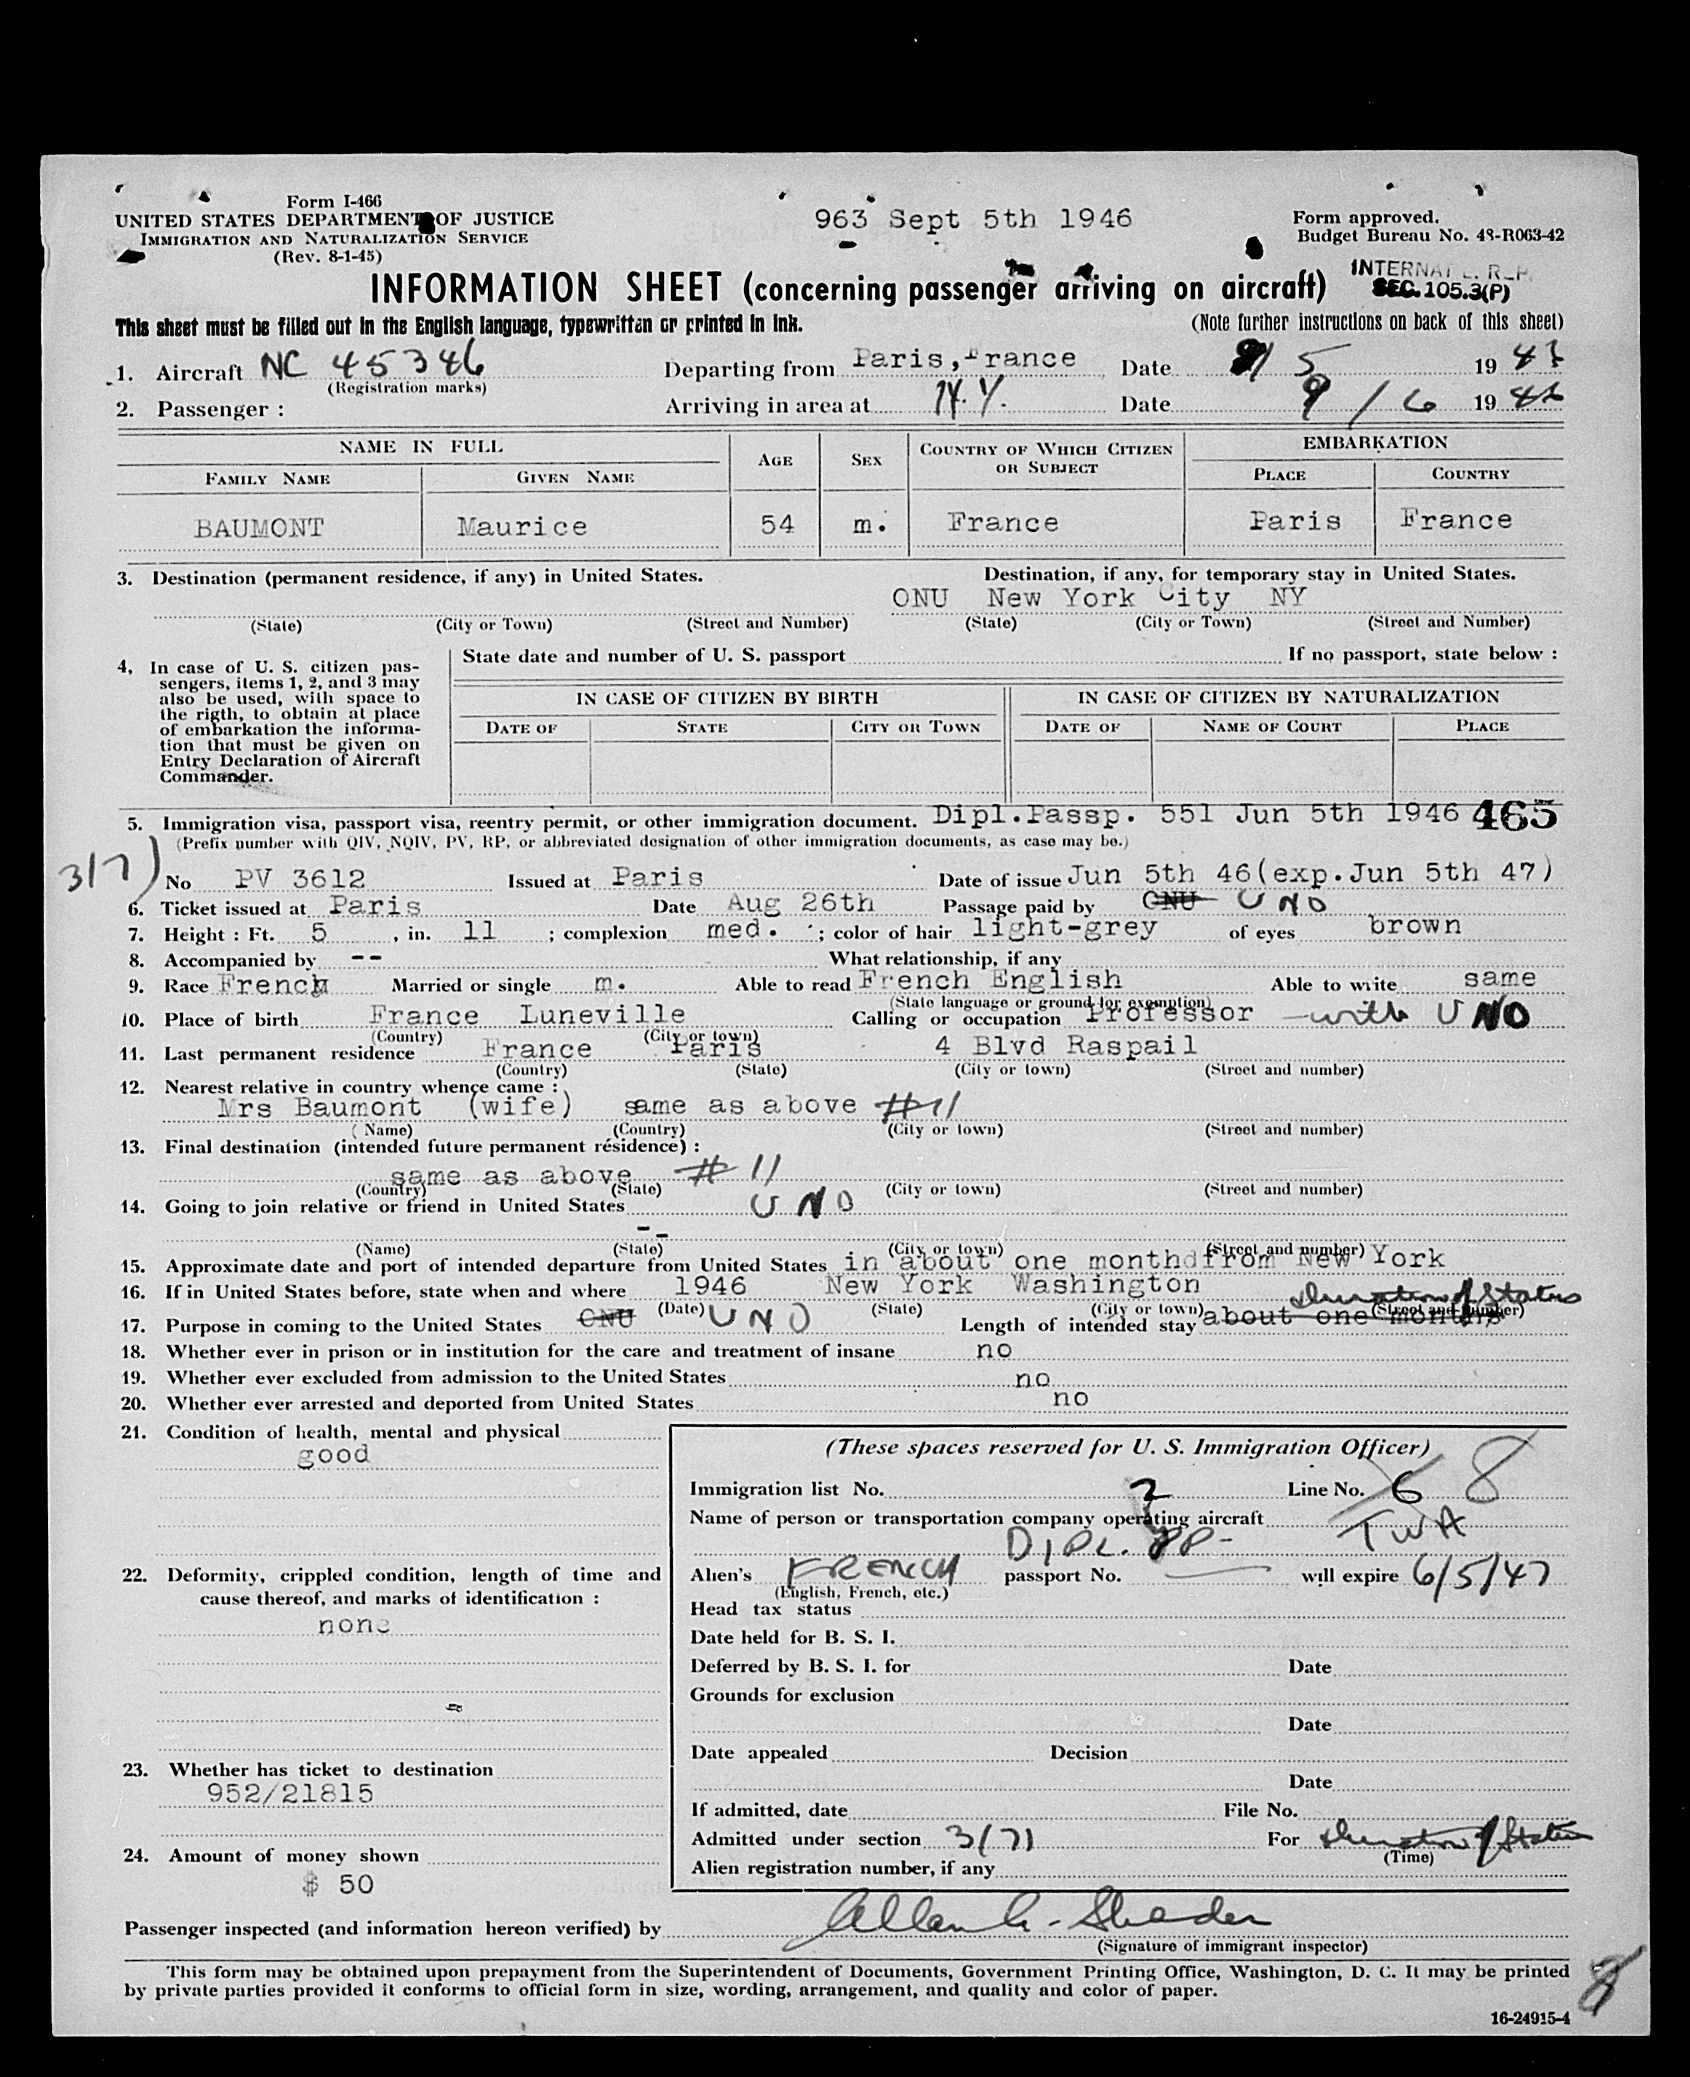 Form I-466
UNITED STATES DEPARTMENT OF JUSTICE
IMMIGRATION AND NATURALIZATION SERVICE
(Rev. 8-1-45)
963 Sept 5th 1946
Form approved.
Budget Bureau No. 43-R063-42
INFORMATION SHEET (concerning passenger arriving on aircraft)
SEC. 105.3(P)
This sheet must be filled out in the English language, typewritten or printed in ink.
(Note further instructions on back of this sheet)
1. Aircraft NC 45346 Departing from Paris, France Date 9/ 5 19
(Registration marks)
2. Passenger : Arriving in area at N.Y. Date 9 / 6 19 46
NAME IN FULL AGE SEX COUNTRY OF WHICH CITIZEN OR SUBJECT EMBARKATION
FAMILY NAME GIVEN NAME PLACE COUNTRY
BAUMONT Maurice 54 m. France Paris France
3. Destination (permanent residence, if any) in United States. Destination, if any, for temporary stay in United States.
ONU New York City NY
(State) (City or Town) (Street and Number) (State) (City or Town) (Street and Number)
4, In case of U. S. citizen pas-
sengers, items 1, 2, and 3 may
also be used, with space to
the rigth, to obtain at place
of embarkation the informa-
tion that must be given on
Entry Declaration of Aircraft
Commander.
State date and number of U. S. passport If no passport, state below :
IN CASE OF CITIZEN BY BIRTH IN CASE OF CITIZEN BY NATURALIZATION
DATE OF STATE CITY OR TOWN DATE OF NAME OF COURT PLACE
5. Immigration visa, passport visa, reentry permit, or other immigration document. Dipl.Passp. 551 Jun 5th 1946 465
(Prefix number with QIV, NQIV, PV, RP, or abbreviated designation of other immigration documents, as case may be.)
3/7)
No PV 3612 Issued at Paris Date of issue Jun 5th 46(exp.Jun 5th 47)
6. Ticket issued at Paris Date Aug 26th Passage paid by ONU UNO
7. Height : Ft. 5 , in. 11 ; complexion med. ; color of hair light-grey of eyes brown
8. Accompanied by -- What relationship, if any
9. Race French Married or single m. Able to read French English Able to write same
(State language or ground for exemption)
10. Place of birth France Luneville Calling or occupation Professor - with UNO
(Country) (City or town)
11. Last permanent residence France Paris 4 Blvd Raspail
(Country) (State) (City or town) (Street and number)
12. Nearest relative in country whence came :
Mrs Baumont (wife) same as above #11
( Name) (Country) (City or town) (Street and number)
13. Final destination (intended future permanent résidence) :
same as above # 11
(Country) (State) (City or town) (Street and number)
14. Going to join relative or friend in United States UNO
--
(Name) (State) (City or town) (Street and number)
15. Approximate date and port of intended departure from United States in about one month from New York
16. If in United States before, state when and where 1946 New York Washington
(Date) (State) (City or town) (Street and number)
Duration of Status
17. Purpose in coming to the United States ONU UNO Length of intended stay about one month
18. Whether ever in prison or in institution for the care and treatment of insane no
19. Whether ever excluded from admission to the United States no
20. Whether ever arrested and deported from United States no
21. Condition of health, mental and physical
good
22. Deformity, crippled condition, length of time and
cause thereof, and marks of identification :
none
23. Whether has ticket to destination
952/21815
24. Amount of money shown
$ 50
(These spaces reserved for U. S. Immigration Officer)
Immigration list No. 2 Line No. 6 8
Name of person or transportation company operating aircraft TWA
DIPL. PP-
Alien's FRENCH passport No. will expire 6/5/47
(English, French, etc.)
Head tax status
Date held for B. S. I.
Deferred by B. S. I. for Date
Grounds for exclusion
Date
Date appealed Decision
Date
If admitted, date File No.
Admitted under section 3(7) For Duration of Status
(Time)
Alien registration number, if any
Passenger inspected (and information hereon verified) by
(Signature of immigrant inspector)
This form may be obtained upon prepayment from the Superintendent of Documents, Government Printing Office, Washington, D. C. It may be printed
by private parties provided it conforms to official form in size, wording, arrangement, and quality and color of paper.
8
16-24915-4